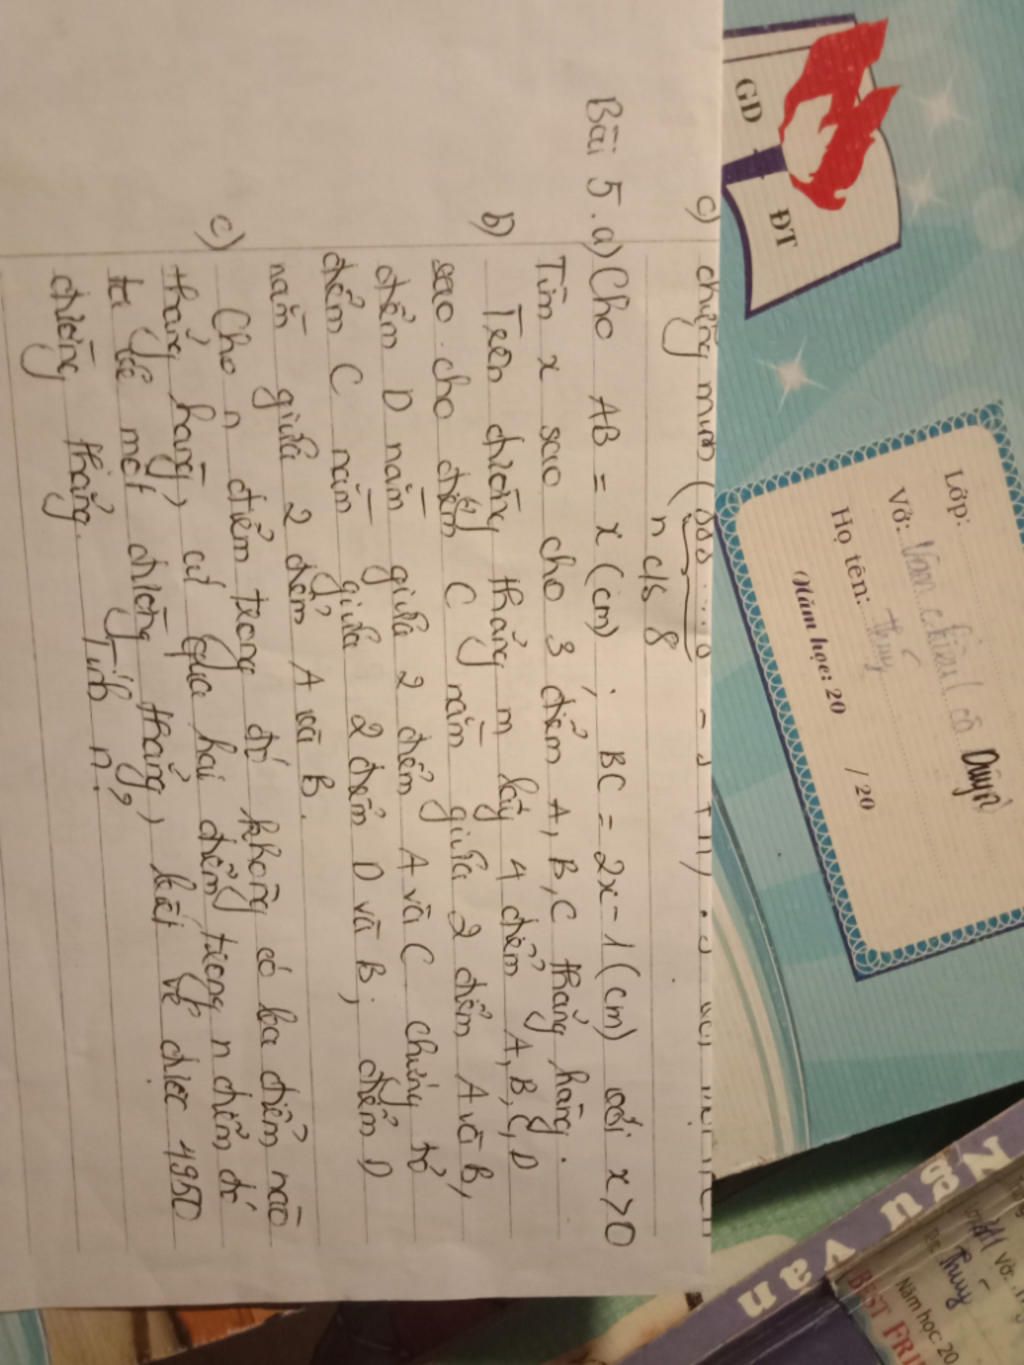 c) chứng minh (888.....8 - 9 + n)
n c/s 8
Bài 5. a) Cho AB = x (cm) ; BC = 2x-1 (cm) với x>0
Tìm x sao cho 3 điểm A, B, C thẳng hàng.
b) Trên đường thẳng m lấy 4 điểm A, B, C, D
sao cho điểm C nằm giữa 2 điểm A và B,
điểm D nằm giữa 2 điểm A và C chứng tỏ
điểm C nằm giữa 2 điểm D và B; điểm D
nằm giữa 2 điểm A và B.
c) Cho n điểm trong đó không có ba điểm nào
thẳng hàng, cứ qua hai điểm trong n điểm đó
ta kẻ một đường thẳng, biết vẽ được 4950
đường thẳng. Tính n?
GD
ĐT
Lớp:
Vở:
Duyên
Họ tên: Thúy
Năm học: 20 /20
Ngữ Văn
BEST FRI
Vở:
Tên: Thúy
Năm học: 20